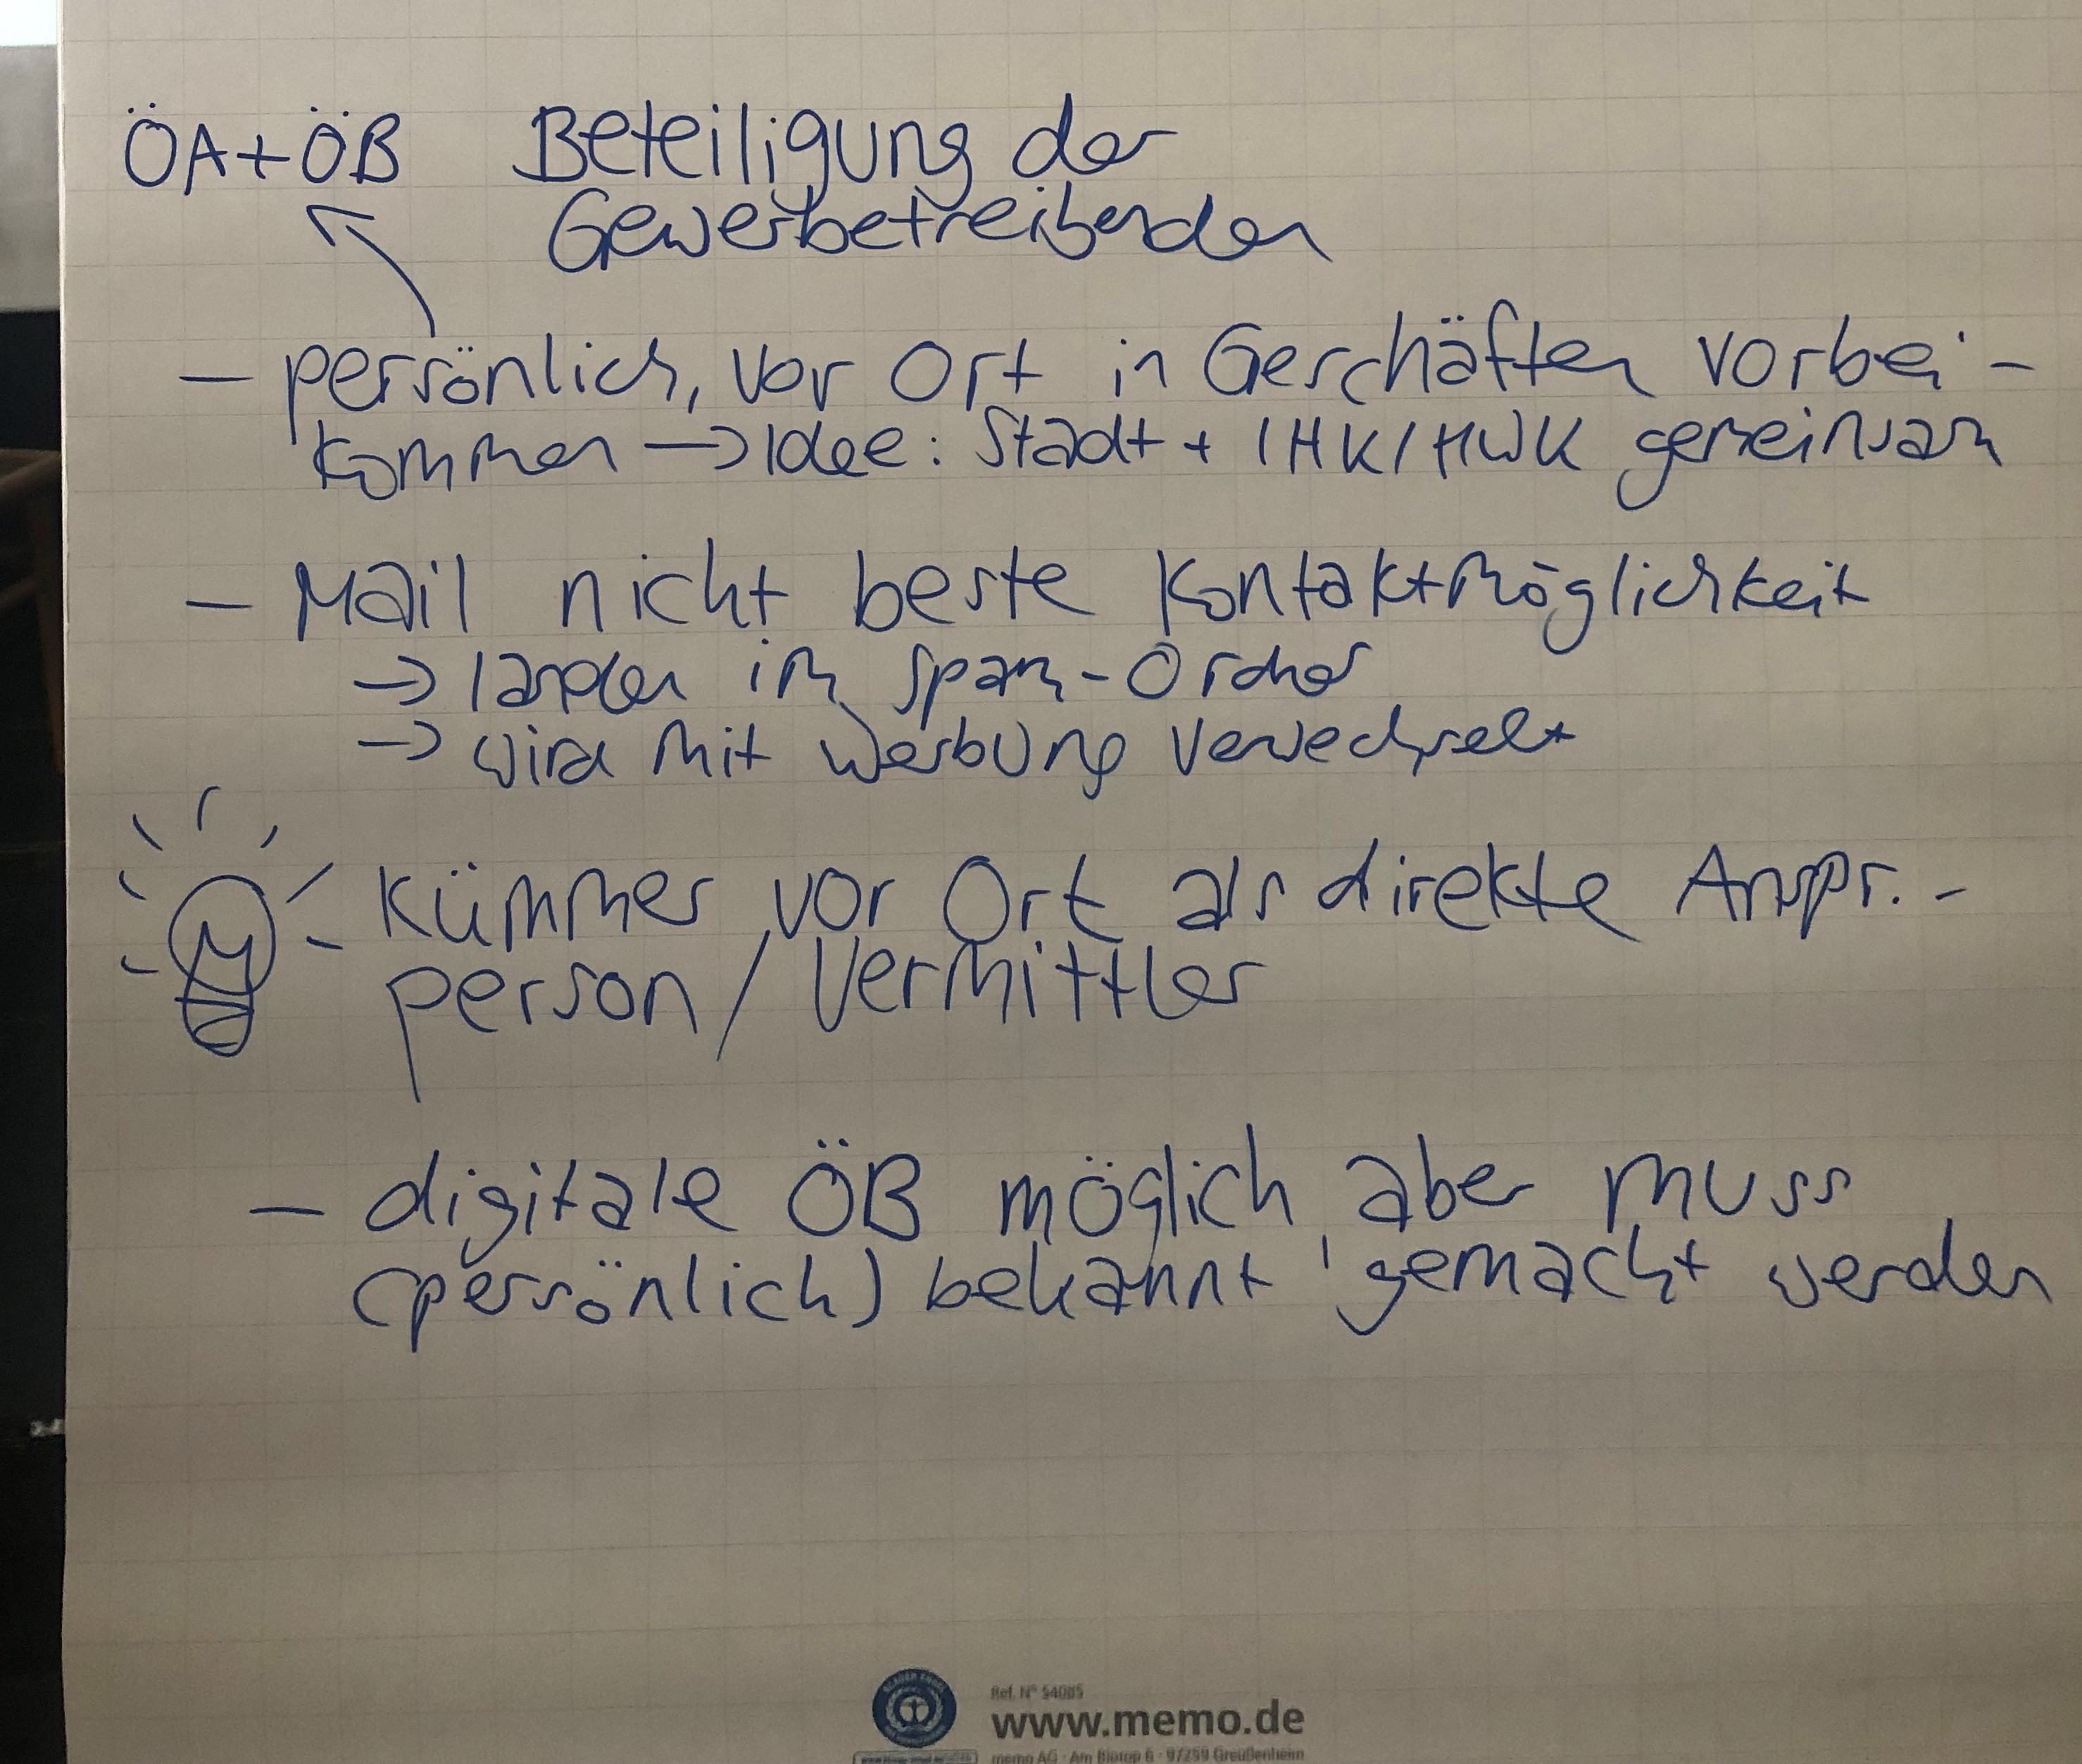 ÖA+ÖB Beteiligung der
Gewerbetreibenden
– persönlich, vor Ort in Geschäften vorbei-
kommen → Idee: Stadt + IHK/HWK gemeinsam
– Mail nicht beste Kontaktmöglichkeit
→ landen im Spam-Ordner
→ wird mit Werbung verwechselt
Kümmer vor Ort als direkte Anspr.-
person / Vermittler
– digitale ÖB möglich aber muss
(persönlich) bekannt gemacht werden
Ref. N° 54085
www.memo.de
memo AG · Am Biotop 6 · 97259 Greußenheim